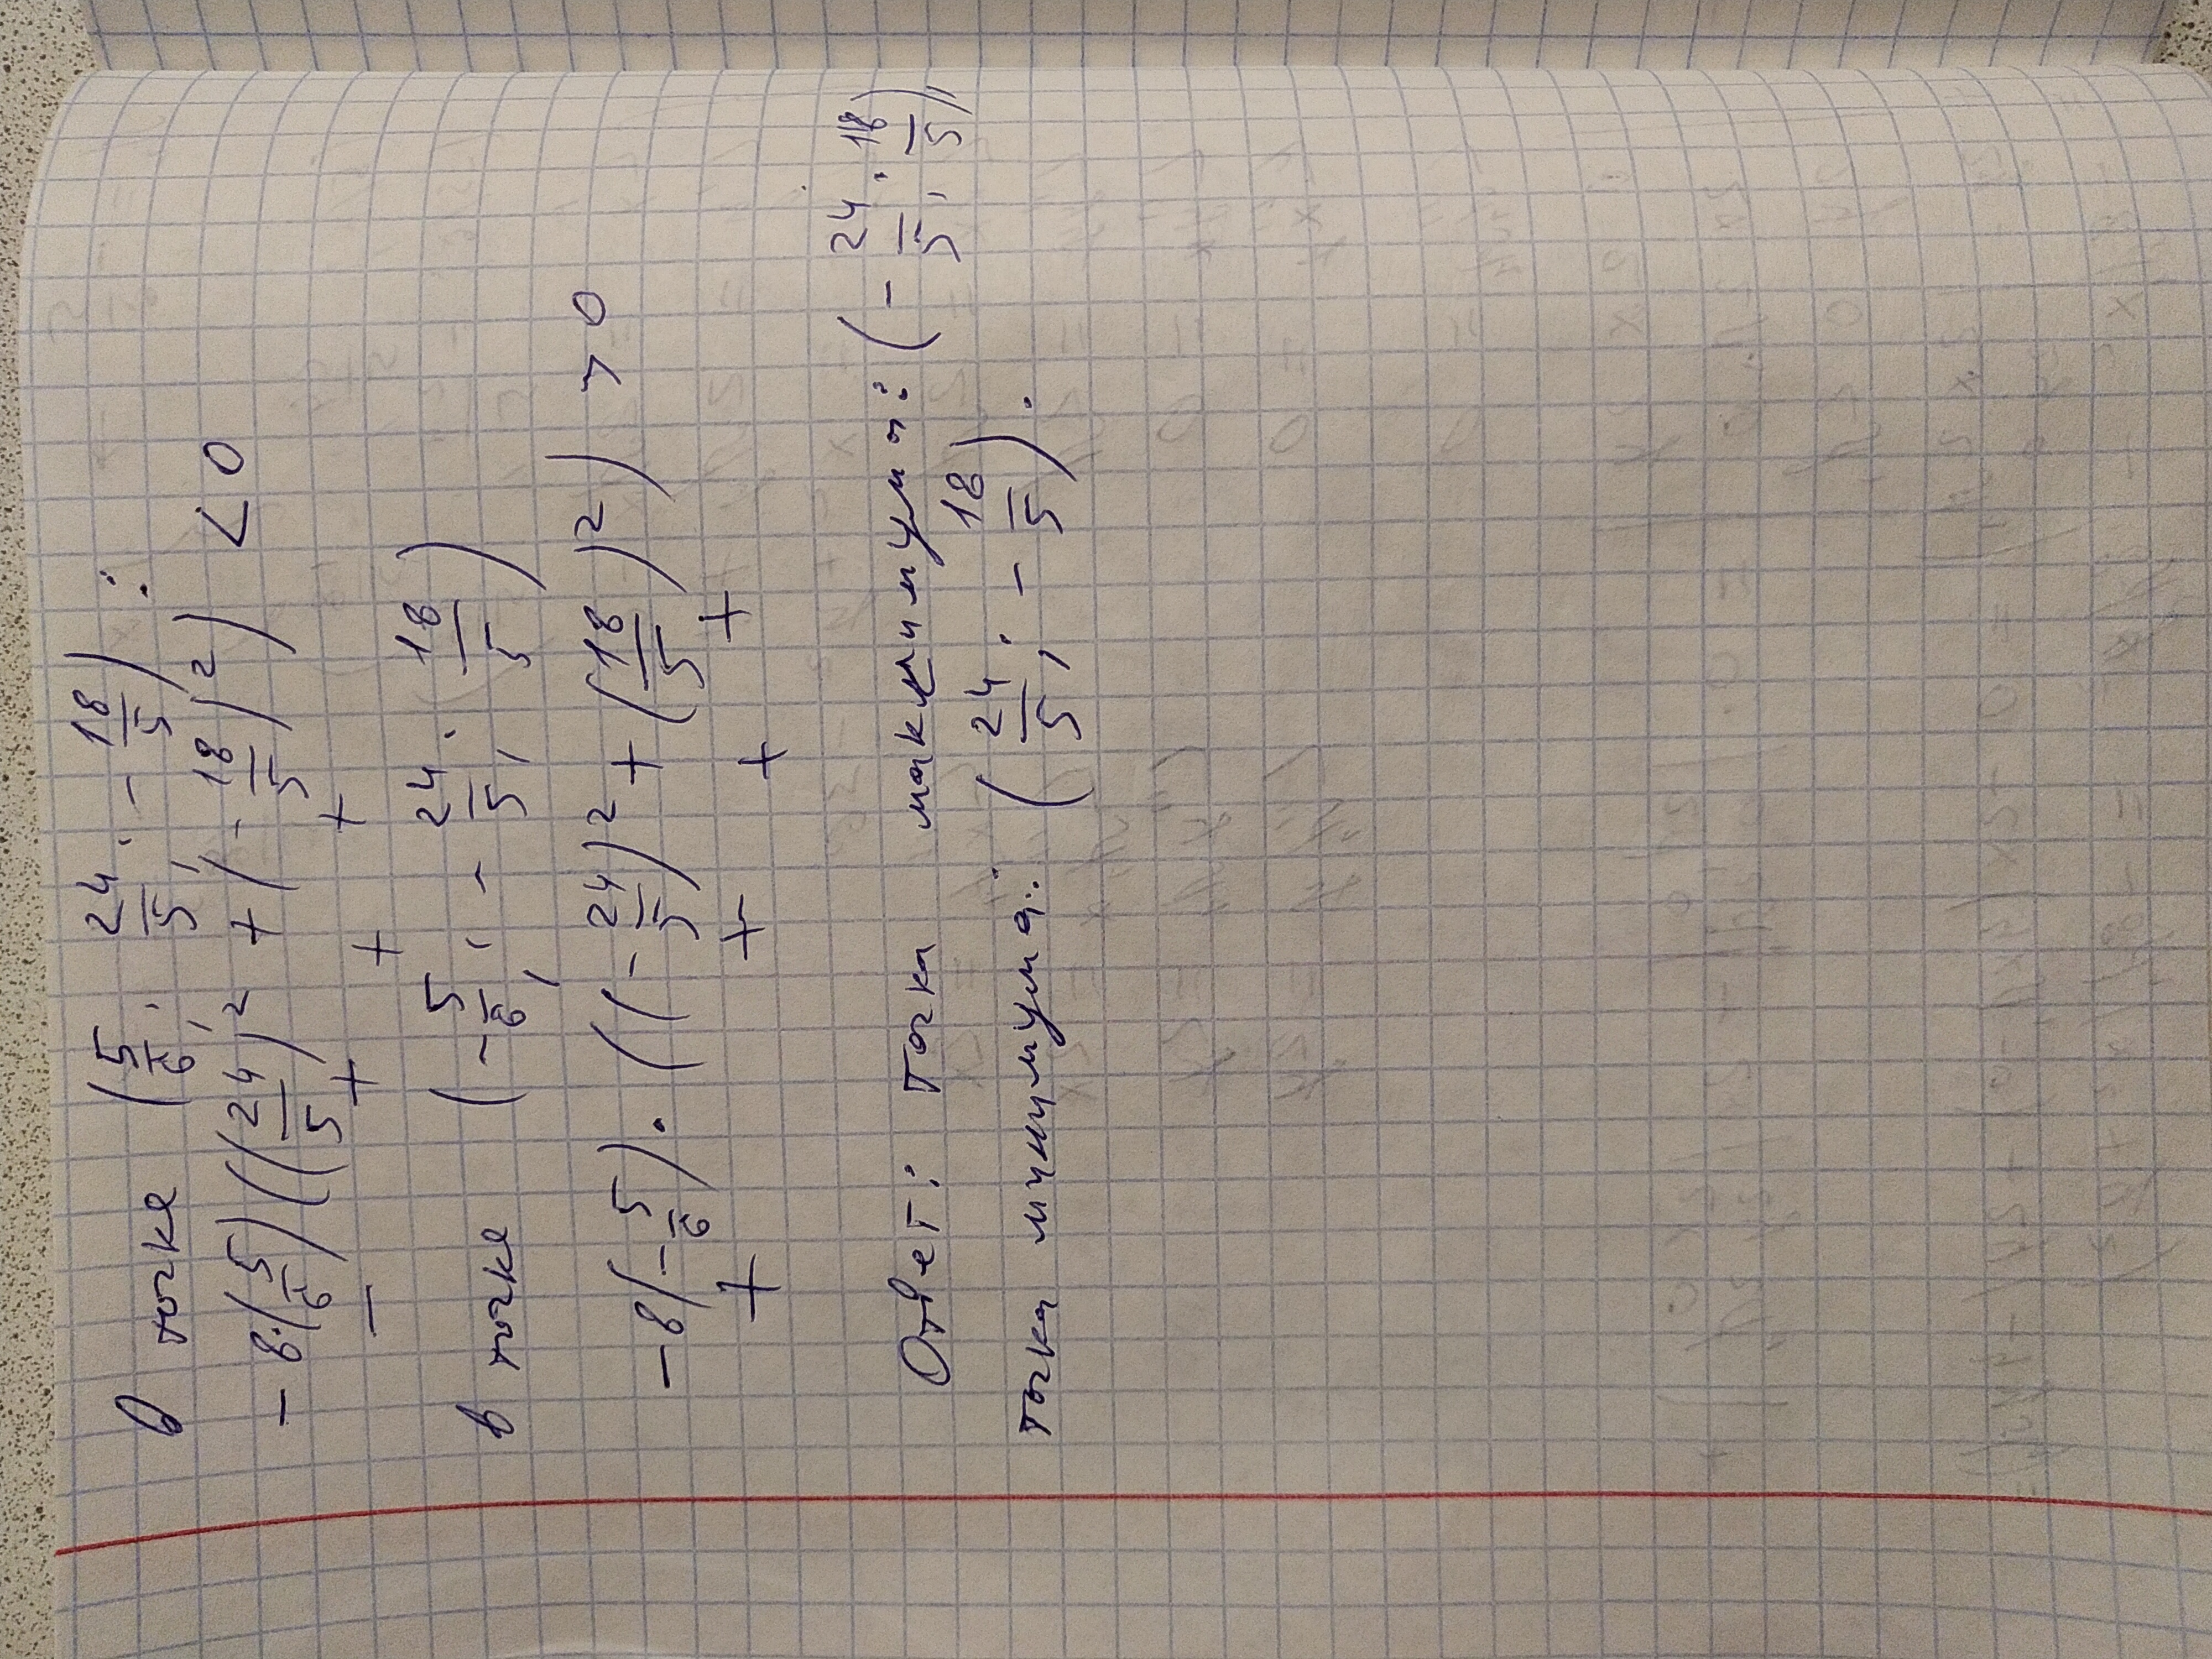 В точке (5/6; 24/5; -18/5):
-8·(5/6)((24/5)² + (-18/5)²) < 0
- + + +
в точке (-5/6; -24/5; 18/5)
-8(-5/6)·((-24/5)² + (18/5)²) > 0
+ + + +
Ответ: точка максимума: (-24/5; 18/5),
точка минимума: (24/5; -18/5).